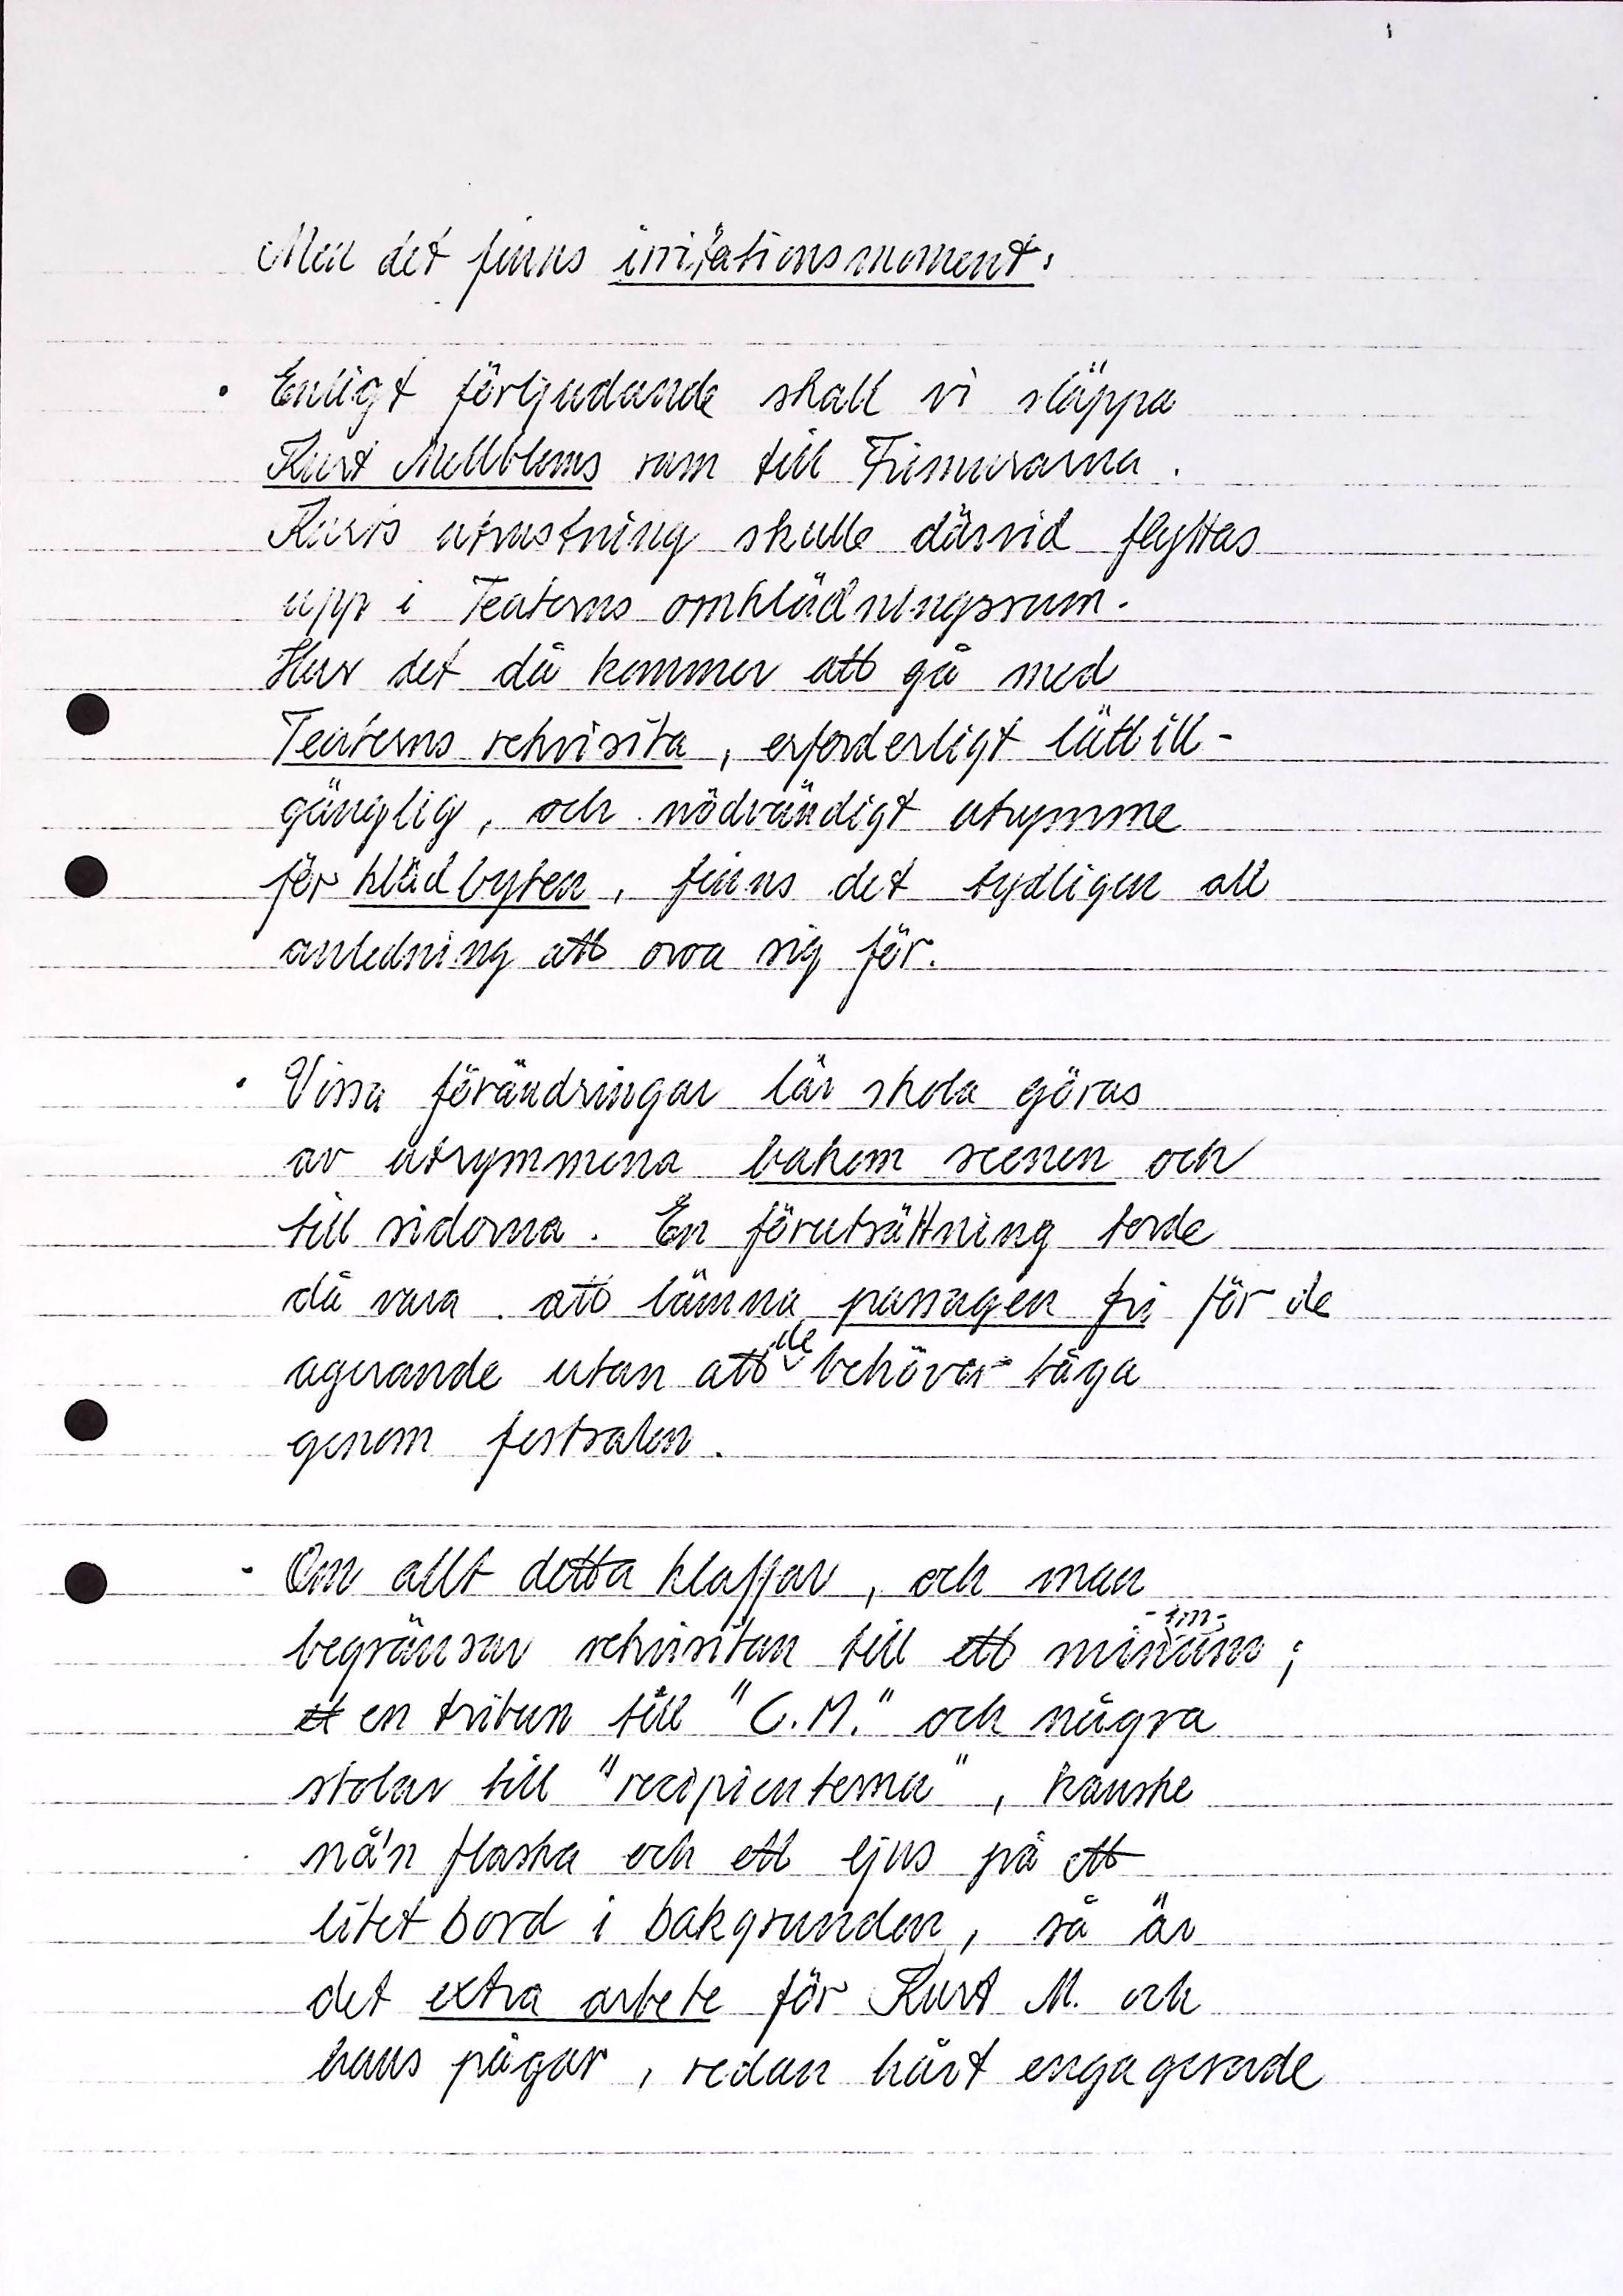 Men det finns irritationsmoment:
· Enligt förljudande skall vi släppa
Kurt Mellbloms rum till Frimurarna.
Kurts utrustning skulle därvid flyttas
upp i Teaterns omklädningsrum.
Hur det då kommer att gå med
Teaterns rekvisita, erforderligt lättill-
gänglig, och nödvändigt utrymme
för klädbyten, finns det tydligen all
anledning att oroa sig för.
· Vissa förändringar lär skola göras
av utrymmena bakom scenen och
till sidorna. En förutsättning torde
då vara att lämna passagen fri för de
agerande utan att de behöver tåga
genom festsalen.
- Om allt detta klaffar, och man
begränsar rekvisitan till ett minimum;
en tribun till "C.M." och några
stolar till "recipienterna", kanske
nå'n flaska och ett ljus på ett
litet bord i bakgrunden, så är
det extra arbete för Kurt M. och
hans pågar, redan hårt engagerade